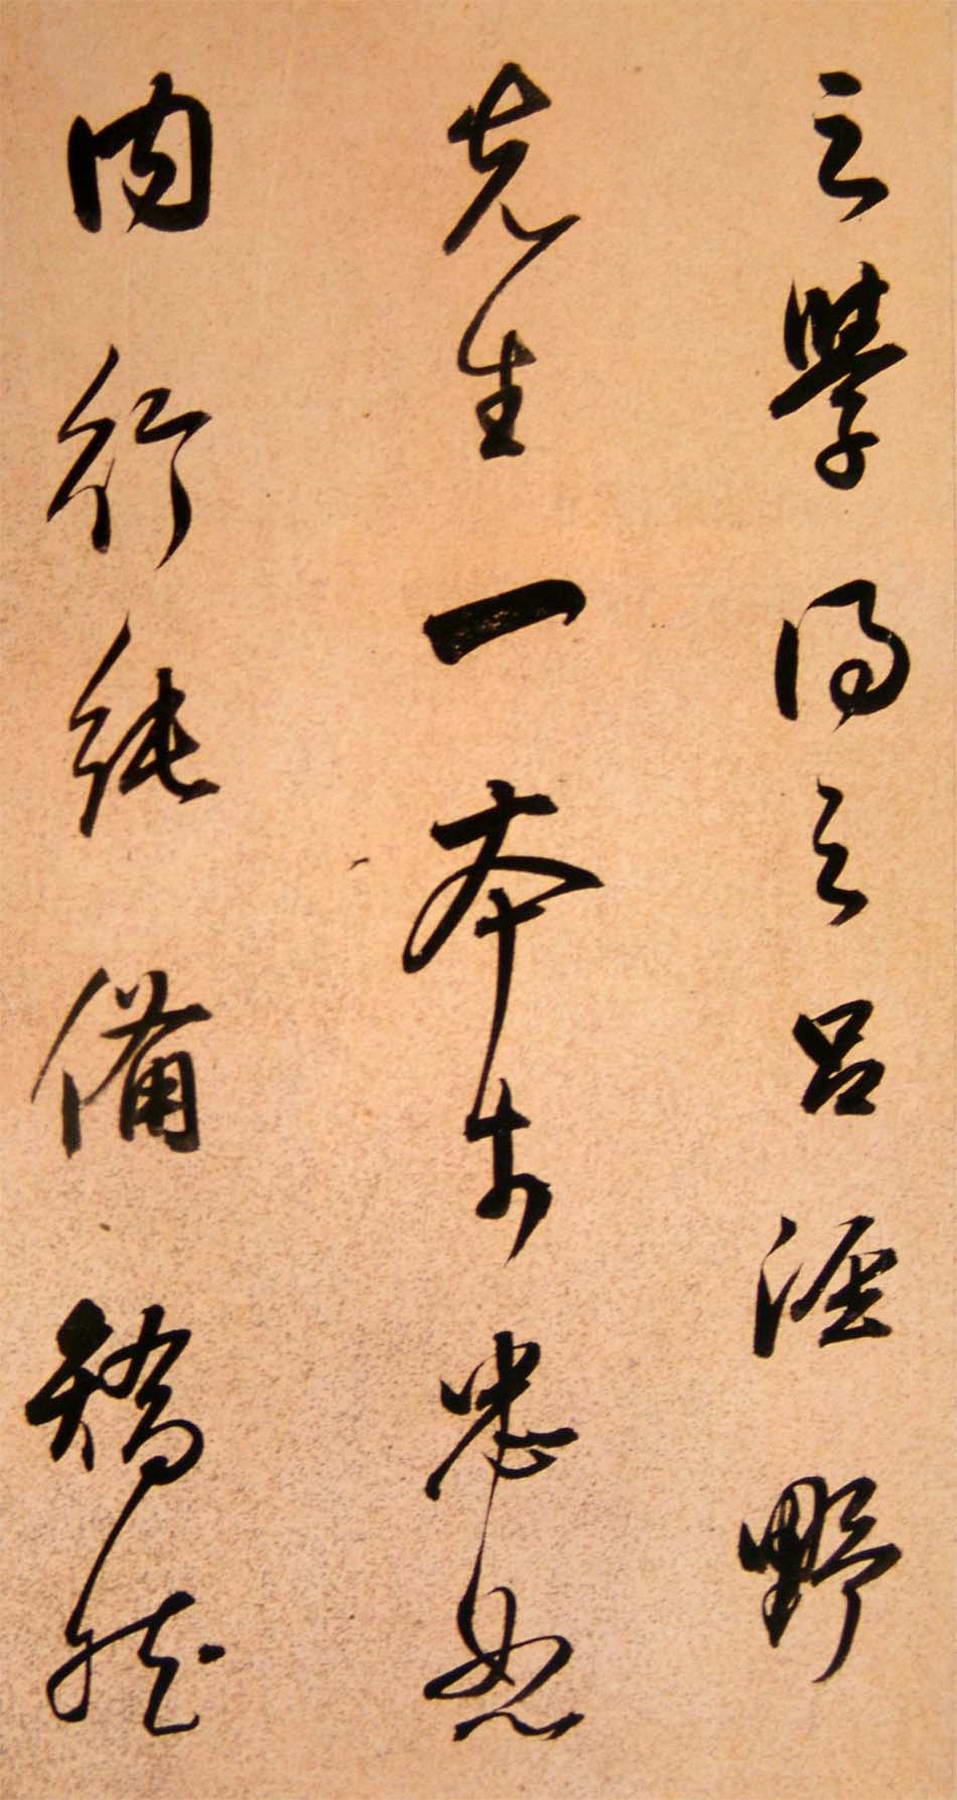 之學得之呂涇野
先生一本於忠恕
內行純備矯然